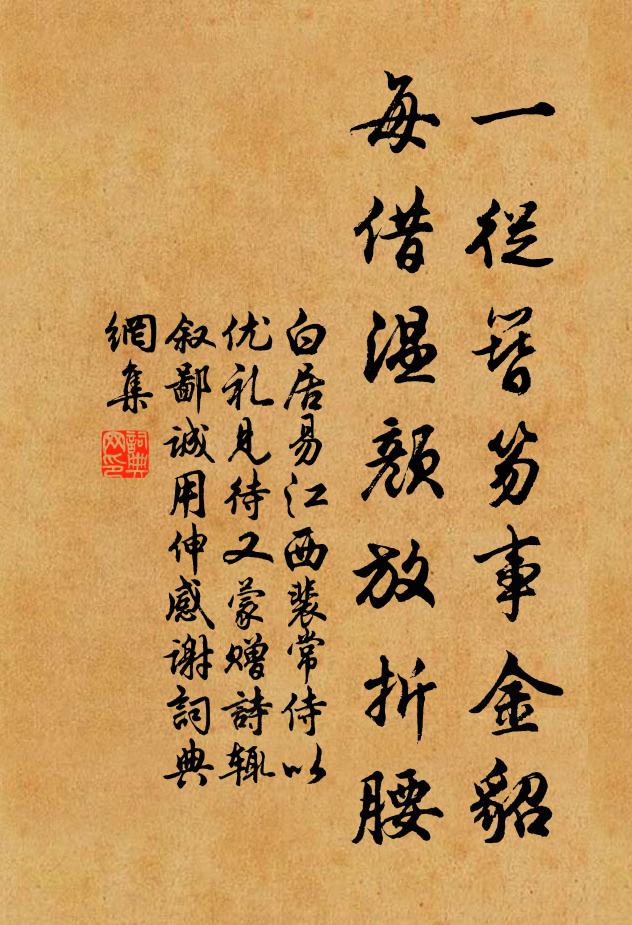 一從簪笏事金貂
每借溫顏放折腰
白居易江西裴常侍以
优礼見待又蒙赠詩辄
叙鄙诚用伸感谢詞典
網集
詞典
网印